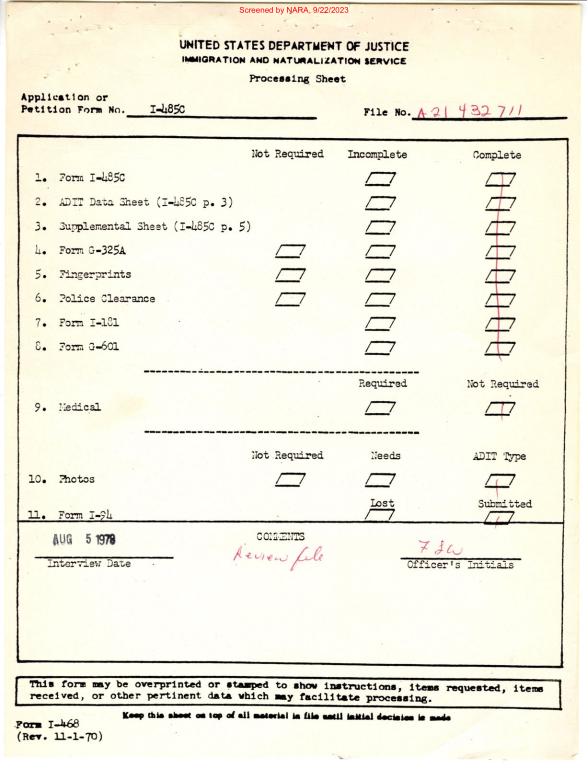 Screened by NARA, 9/22/2023
UNITED STATES DEPARTMENT OF JUSTICE
IMMIGRATION AND NATURALIZATION SERVICE
Processing Sheet
Application or
Petition Form No. I-485C File No. A21 432 711
Not Required Incomplete Complete
1. Form I-485C
2. ADIT Data Sheet (I-485C p. 3)
3. Supplemental Sheet (I-485C p. 5)
4. Form G-325A
5. Fingerprints
6. Police Clearance
7. Form I-181
8. Form G-601
Required Not Required
9. Medical
Not Required Needs ADIT Type
10. Photos
Lost Submitted
11. Form I-94
AUG 5 1978 COMMENTS
Review file
Interview Date Officer's Initials
This form may be overprinted or stamped to show instructions, items requested, items
received, or other pertinent data which may facilitate processing.
Keep this sheet on top of all material in file until initial decision is made
Form I-468
(Rev. 11-1-70)